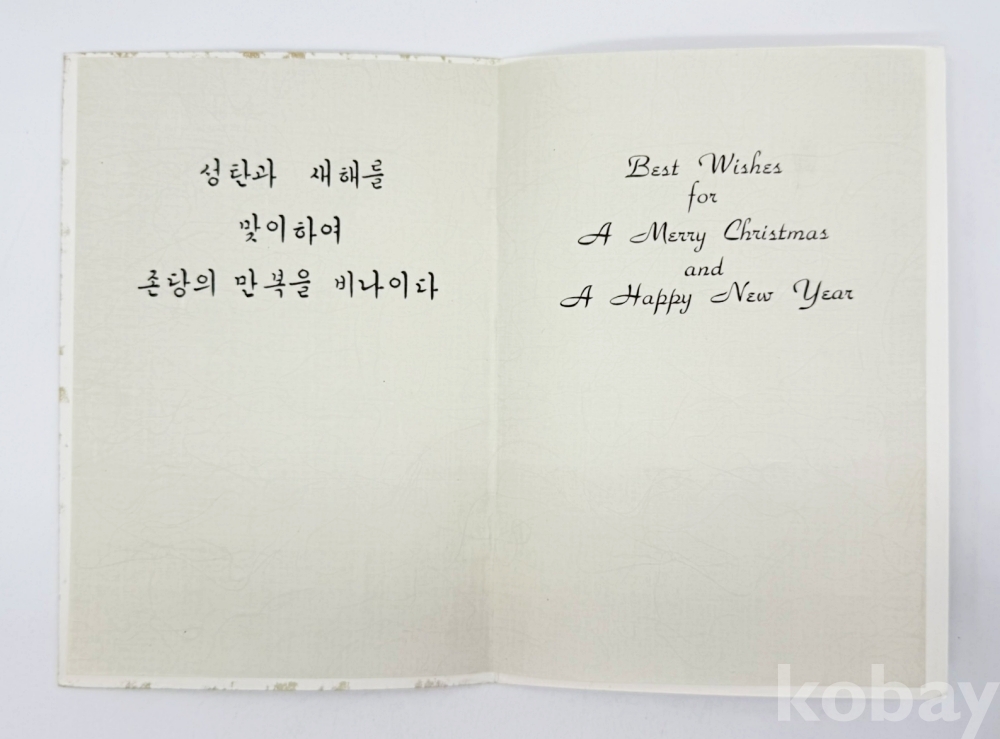 성탄과 새해를
맞이하여
존당의 만복을 비나이다
Best Wishes
for
A Merry Christmas
and
A Happy New Year
kobay